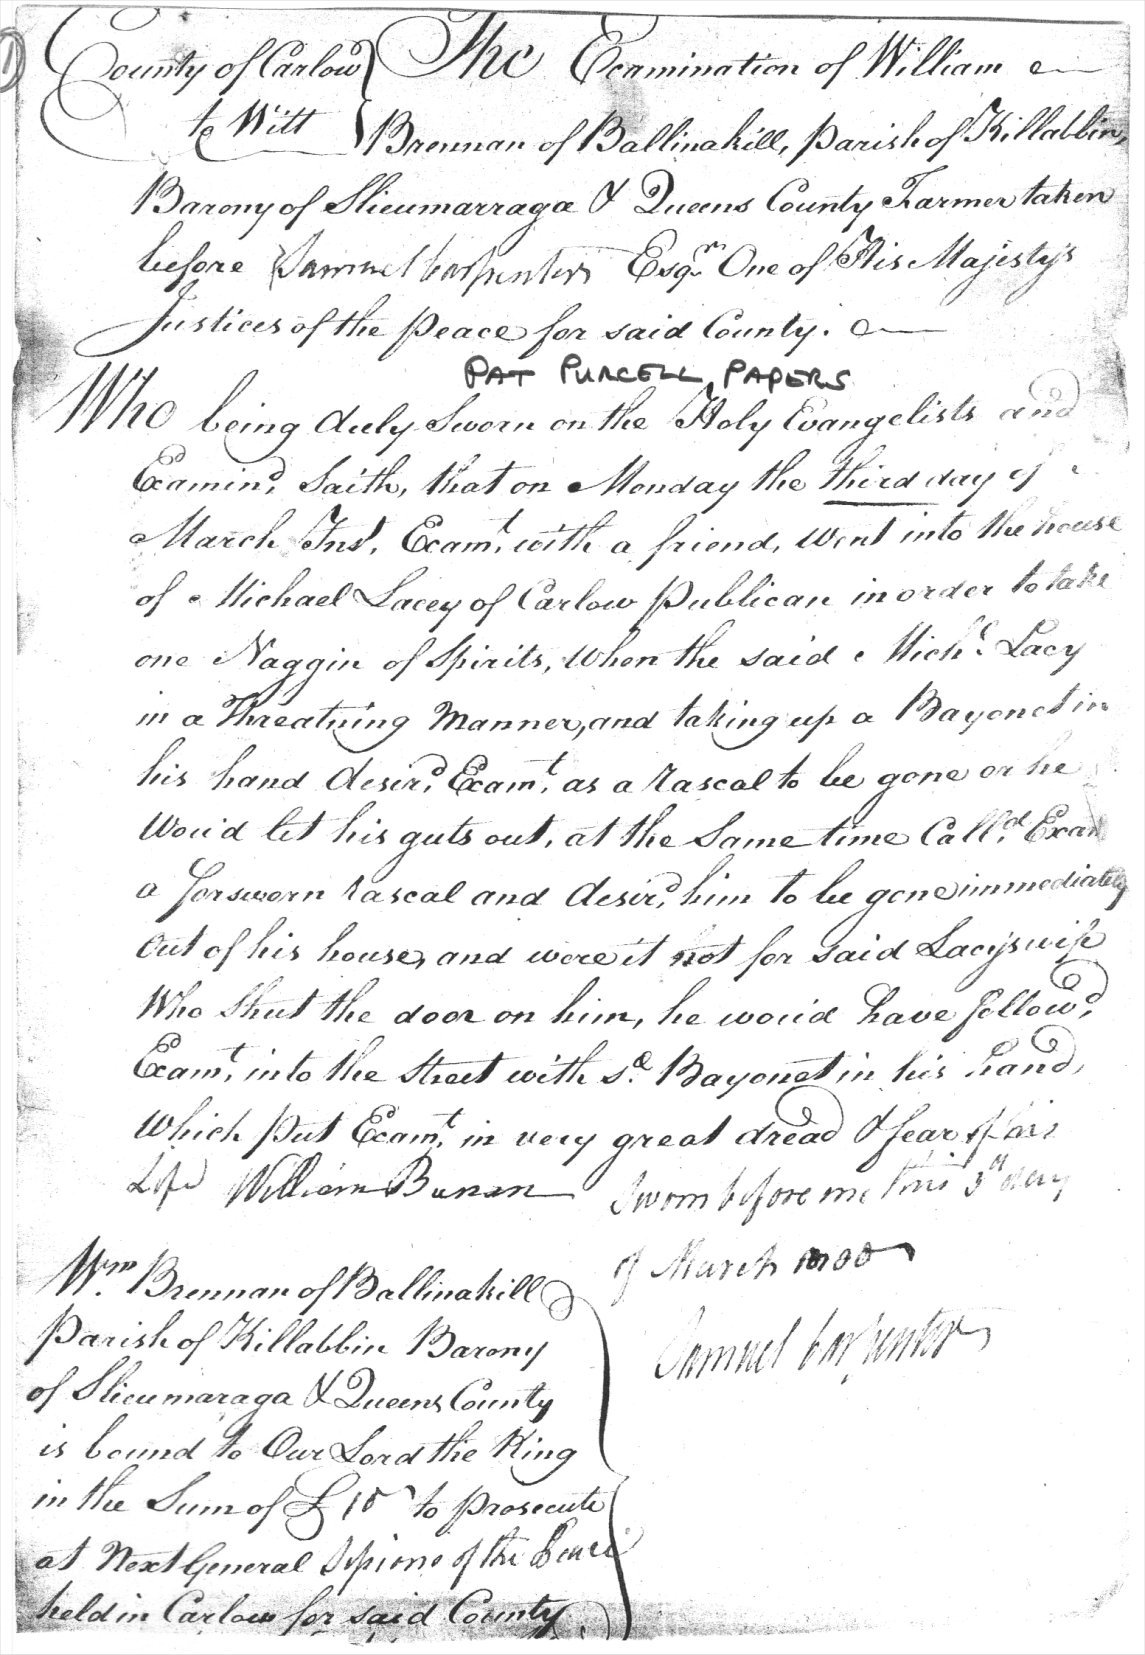 County of Carlow The Examination of William
to Witt Brennan of Ballinakill, Parish of Killabbin,
Barony of Slieumarraga & Queens County Farmer taken
before Samuel Carpenter Esqr. One of His Majesty's
Justices of the Peace for said County.
PAT PURCELL PAPERS
Who being duly Sworn on the Holy Evangelists and
Examind, Saith, that on Monday the third day of
March Inst, Examt, with a friend, went into the house
of Michael Lacey of Carlow Publican in order to take
one Naggin of Spirits, when the said Michl Lacy
in a Threatning Manner, and taking up a Bayonet in
his hand desird, Examt, as a rascal to be gone or he
Wou'd let his guts out, at the same time Calld, Exam
a forsworn rascal and desird, him to be gone immediately
out of his house, and were it not for said Lacy's wife
Who Shut the door on him, he wou'd have followd,
Examt, into the Street with sd. Bayonet in his hand,
Which Put Examt, in very great dread & fear of his
Life William Brnan Sworn before me this 3d day
of March
Wm. Brennan of Ballinakill
Parish of Killabbin Barony Samuel Carpenter
of Slieumaraga & Queens County
is bound to Our Lord the King
in the Sum of £10 to prosecute
at Next General Sessions of the Peace
held in Carlow for said County